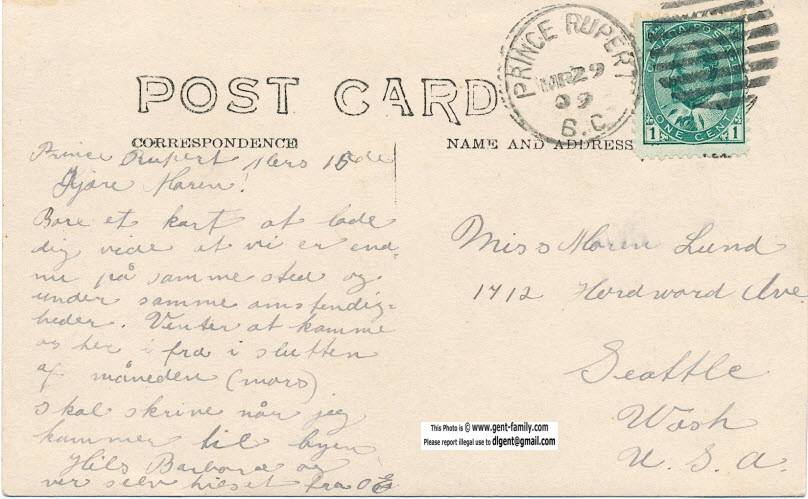 POST CARD
CORRESPONDENCE
NAME AND ADDRESS
PRINCE RUPERT
MR 29
09
B.C.
CANADA POSTAGE
1 ONE CENT 1
Prince Rupert Mers 15de
Kjære Maren!
Bare et kart at lade
dig vide at vi er end-
nu på samme sted og
under samme omstendig-
heder. Venter at komme
os her i fra i slutten
af måneden (mars)
skal skrive når jeg
kommer til byen
Hils Barbara og
ver selv hilset fra O E
Miss Maren Lund
1712 Ave
Seattle
Wash
U. S. A.
This Photo is © www.gent-family.com
Please report illegal use to dlgent@gmail.com